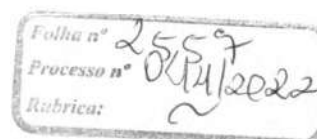 Folha nº 2557
Processo nº 044/2022
Rubrica: